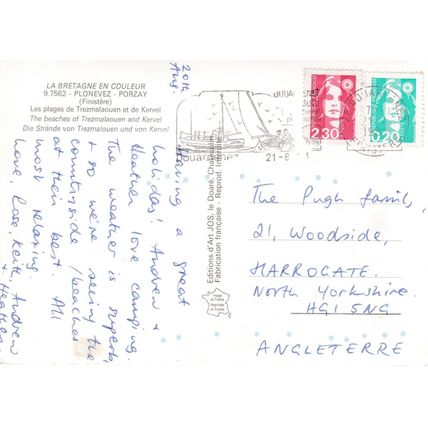 LA BRETAGNE EN COULEUR
9.7562 - PLONEVEZ - PORZAY
(Finistère)
Les plages de Trezmalaouen et de Kervel
The beaches of Trezmalaouen and Kervel
Die Strände von Trezmalouen und von Kervel
20th
Aug.
Having a great
holiday! Andrew +
Heather love camping.
The weather is superb
+ so we're seeing the
countryside / beaches
at their best. All
most relaxing
Love, Rose, Keith, Andrew
+ Heather
Editions d'Art JOS, le Doaré, Châteaulin
Fabrication française - Reprod. Interdite
21-8
2,30
0,20
The Pugh family,
21, Woodside,
HARROGATE.
North Yorkshire.
HG1 5NG
ANGLETERRE